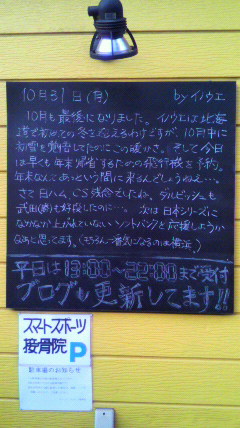 10月31日(月) by イノウエ
10月も最後になりました。イノウエは北海
道で初めての冬をむかえるわけですが、10月中に
初雪も観舌してたのにこの暖かさ。そして今日
は早くも年末帰省するための飛行機を予約。
年末なんてあっという間に来るんでしょうねぇ…。
さて日ハム、CS残念でしたね、ダルビッシュも
武田(勝)も好投したのに…。次は日本シリーズに
なかなか上がれていないソフトバンクを応援しようか
なぁと思ってます。(もちろん一番気になるのは横浜)
平日は13:00〜22:00まで受付
ブログも更新してます!!
スマートスポーツ
接骨院 P
駐車場のお知らせ